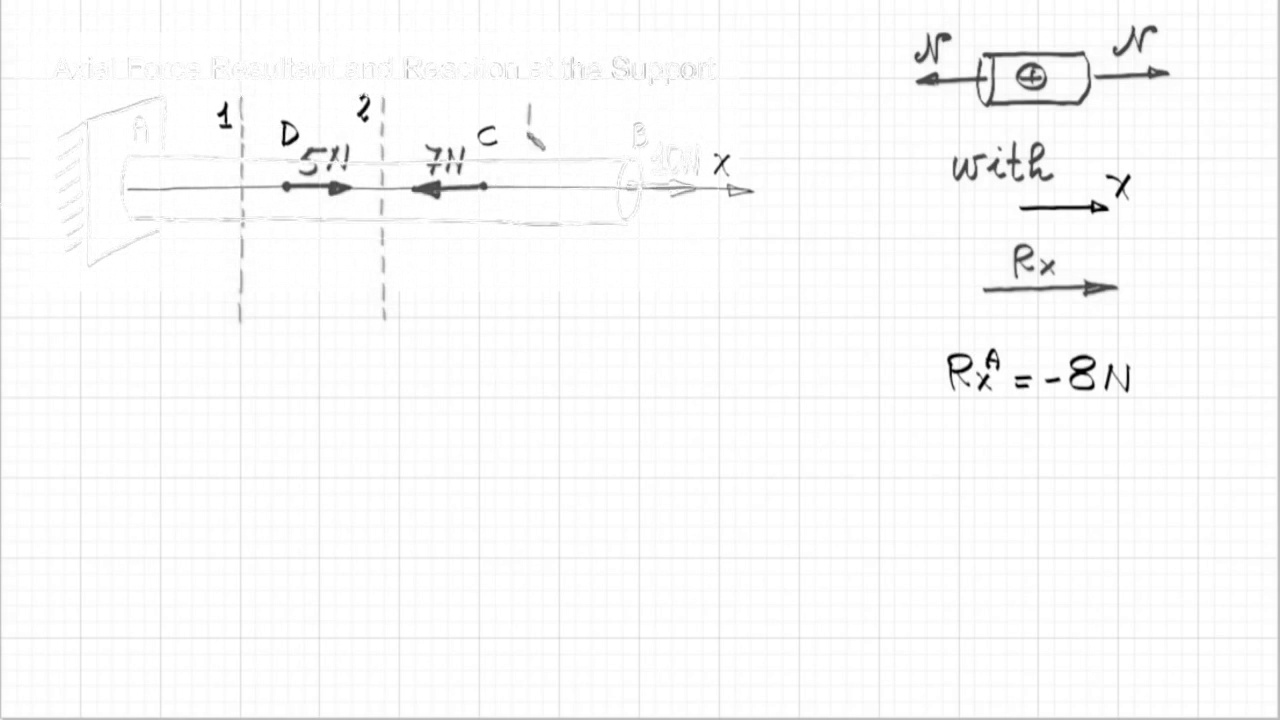 Axial Force Resultant and Reaction at the Support
A 1 D 5N 2 7N C B 10N X
N N
with
X
Rx
RxA = -8N